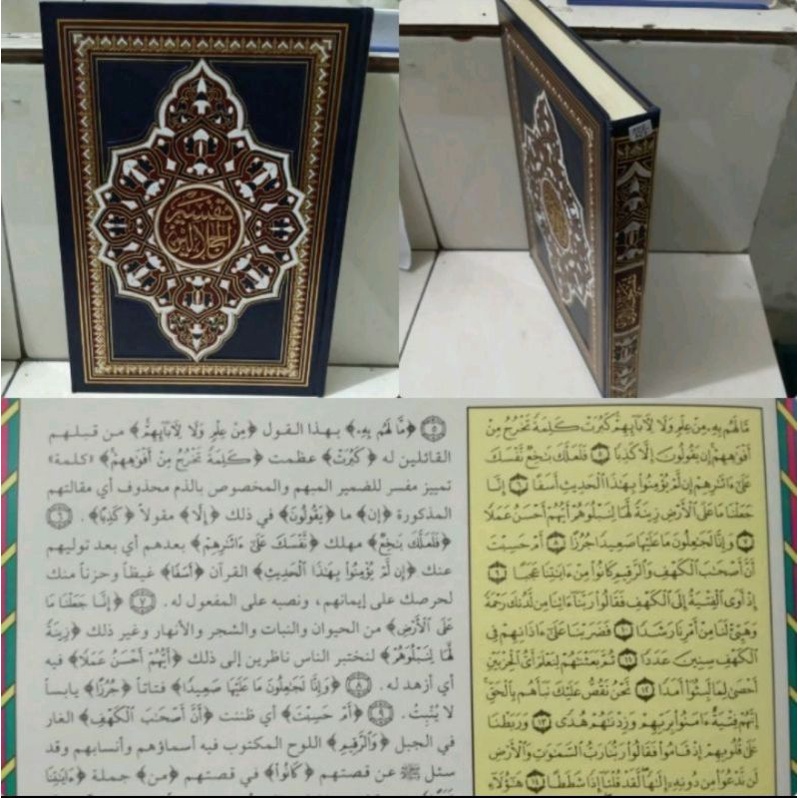 تفسير
الجلالين
٥ ﴿مَّا لَهُم بِهِۦ﴾ بهذا القول ﴿مِنْ عِلْمٍ وَلَا لِأَبَآئِهِمْ﴾ من قبلهم
القائلين له ﴿كَبُرَتْ﴾ عظمت ﴿كَلِمَةً تَخْرُجُ مِنْ أَفْوَٰهِهِمْ﴾ «كلمة»
تمييز مفسر للضمير المبهم والمخصوص بالذم محذوف أي مقالتهم
المذكورة ﴿إِن﴾ ما ﴿يَقُولُونَ﴾ في ذلك ﴿إِلَّا﴾ مقولاً ﴿كَذِبًا﴾. ٦
﴿فَلَعَلَّكَ بَٰخِعٌ﴾ مهلك ﴿نَّفْسَكَ عَلَىٰٓ ءَاثَٰرِهِمْ﴾ بعدهم أي بعد توليهم
عنك ﴿إِن لَّمْ يُؤْمِنُوا۟ بِهَٰذَا ٱلْحَدِيثِ﴾ القرآن ﴿أَسَفًا﴾ غيظاً وحزناً منك
لحرصك على إيمانهم، ونصبه على المفعول له. ٧ ﴿إِنَّا جَعَلْنَا مَا
عَلَى ٱلْأَرْضِ﴾ من الحيوان والنبات والشجر والأنهار وغير ذلك ﴿زِينَةً
لَّهَا لِنَبْلُوَهُمْ﴾ لنختبر الناس ناظرين إلى ذلك ﴿أَيُّهُمْ أَحْسَنُ عَمَلًا﴾ فيه
أي أزهد له. ٨ ﴿وَإِنَّا لَجَٰعِلُونَ مَا عَلَيْهَا صَعِيدًا﴾ فتاتاً ﴿جُرُزًا﴾ يابساً
لا يُنْبِتُ. ٩ ﴿أَمْ حَسِبْتَ﴾ أي ظننت ﴿أَنَّ أَصْحَٰبَ ٱلْكَهْفِ﴾ الغار
في الجبل ﴿وَٱلرَّقِيمِ﴾ اللوح المكتوب فيه أسماؤهم وأنسابهم وقد
سئل ﷺ عن قصتهم ﴿كَانُوا۟﴾ في قصتهم ﴿مِنْ﴾ جملة ﴿ءَايَٰتِنَا
مَّا لَهُم بِهِۦ مِنْ عِلْمٍ وَلَا لِأَبَآئِهِمْ كَبُرَتْ كَلِمَةً تَخْرُجُ مِنْ
أَفْوَٰهِهِمْ إِن يَقُولُونَ إِلَّا كَذِبًا ٥ فَلَعَلَّكَ بَٰخِعٌ نَّفْسَكَ
عَلَىٰٓ ءَاثَٰرِهِمْ إِن لَّمْ يُؤْمِنُوا۟ بِهَٰذَا ٱلْحَدِيثِ أَسَفًا ٦ إِنَّا
جَعَلْنَا مَا عَلَى ٱلْأَرْضِ زِينَةً لَّهَا لِنَبْلُوَهُمْ أَيُّهُمْ أَحْسَنُ عَمَلًا
٧ وَإِنَّا لَجَٰعِلُونَ مَا عَلَيْهَا صَعِيدًا جُرُزًا ٨ أَمْ حَسِبْتَ
أَنَّ أَصْحَٰبَ ٱلْكَهْفِ وَٱلرَّقِيمِ كَانُوا۟ مِنْ ءَايَٰتِنَا عَجَبًا ٩
إِذْ أَوَى ٱلْفِتْيَةُ إِلَى ٱلْكَهْفِ فَقَالُوا۟ رَبَّنَآ ءَاتِنَا مِن لَّدُنكَ رَحْمَةً
وَهَيِّئْ لَنَا مِنْ أَمْرِنَا رَشَدًا ١٠ فَضَرَبْنَا عَلَىٰٓ ءَاذَانِهِمْ فِى
ٱلْكَهْفِ سِنِينَ عَدَدًا ١١ ثُمَّ بَعَثْنَٰهُمْ لِنَعْلَمَ أَىُّ ٱلْحِزْبَيْنِ
أَحْصَىٰ لِمَا لَبِثُوٓا۟ أَمَدًا ١٢ نَّحْنُ نَقُصُّ عَلَيْكَ نَبَأَهُم بِٱلْحَقِّ
إِنَّهُمْ فِتْيَةٌ ءَامَنُوا۟ بِرَبِّهِمْ وَزِدْنَٰهُمْ هُدًى ١٣ وَرَبَطْنَا
عَلَىٰ قُلُوبِهِمْ إِذْ قَامُوا۟ فَقَالُوا۟ رَبُّنَا رَبُّ ٱلسَّمَٰوَٰتِ وَٱلْأَرْضِ
لَن نَّدْعُوَا۟ مِن دُونِهِۦٓ إِلَٰهًا لَّقَدْ قُلْنَآ إِذًا شَطَطًا ١٤ هَٰٓؤُلَآءِ